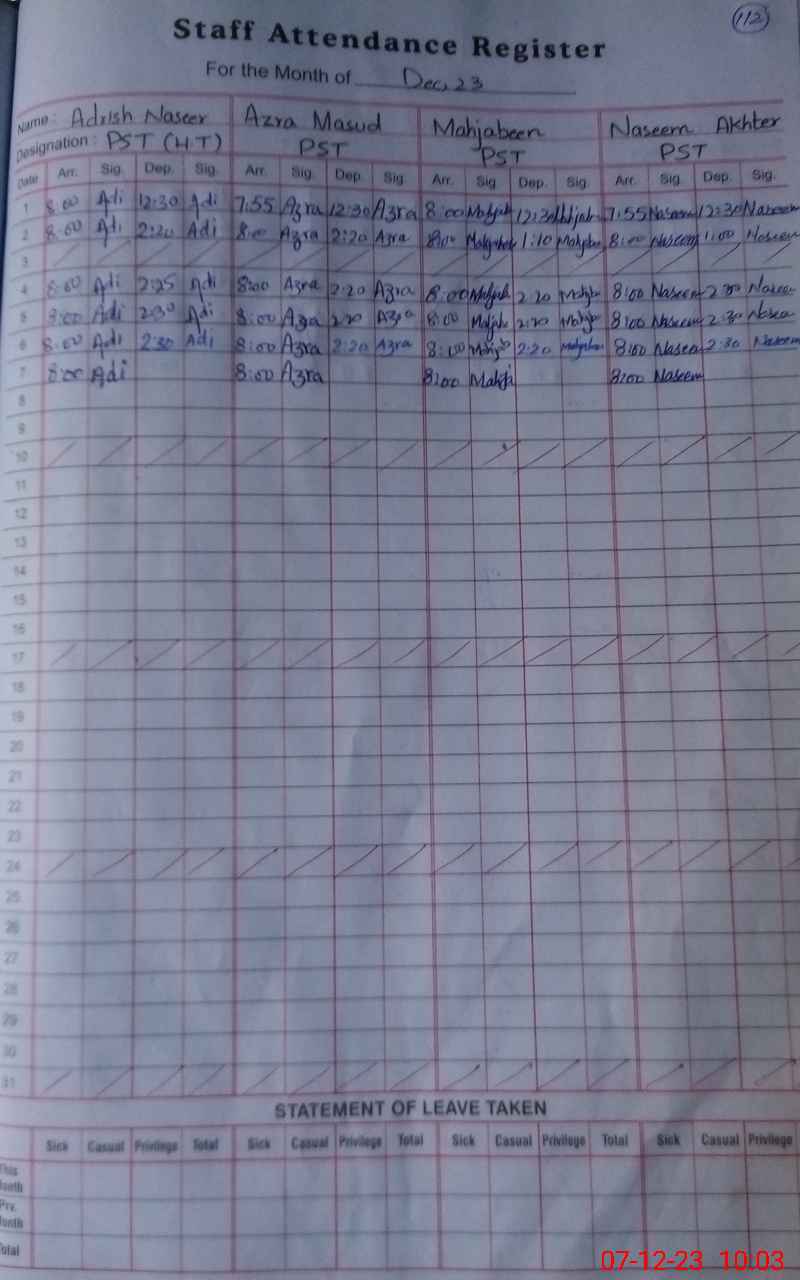 112
Staff Attendance Register
For the Month of Dec, 23
Name : Adrish Naseer Azra Masud Mahjabeen Naseem Akhter
Designation : PST (H.T) PST PST PST
Date Arr. Sig. Dep. Sig. Arr. Sig. Dep. Sig. Arr. Sig. Dep. Sig. Arr. Sig. Dep. Sig.
1 8:00 Adi 12:30 Adi 7:55 Azra 12:30 Azra 8:00 12:30 7:55 Naseem 12:30 Naseem
2 8:00 Adi 2:20 Adi 8:00 Azra 2:20 Azra 8:00 1:10 8:00 Naseem 1:00 Naseem
3
4 8:00 Adi 2:25 Adi 8:00 Azra 2:20 Azra 8:00 2:20 8:00 Naseem 2:30
5 8:00 Adi 2:30 Adi 8:00 Azra 2:20 Azra 8:00 2:20 8:00 Naseem 2:30
6 8:00 Adi 2:30 Adi 8:00 Azra 2:20 Azra 8:00 2:20 8:00 2:30 Naseem
7 8:00 Adi 8:00 Azra 8:00 8:00 Naseem
8
9
10
11
12
13
14
15
16
17
18
19
20
21
22
23
24
25
26
27
28
29
30
31
STATEMENT OF LEAVE TAKEN
Sick Casual Privilege Total Sick Casual Privilege Total Sick Casual Privilege Total Sick Casual Privilege
This
Month
Prv.
Month
Total
07-12-23 10:03